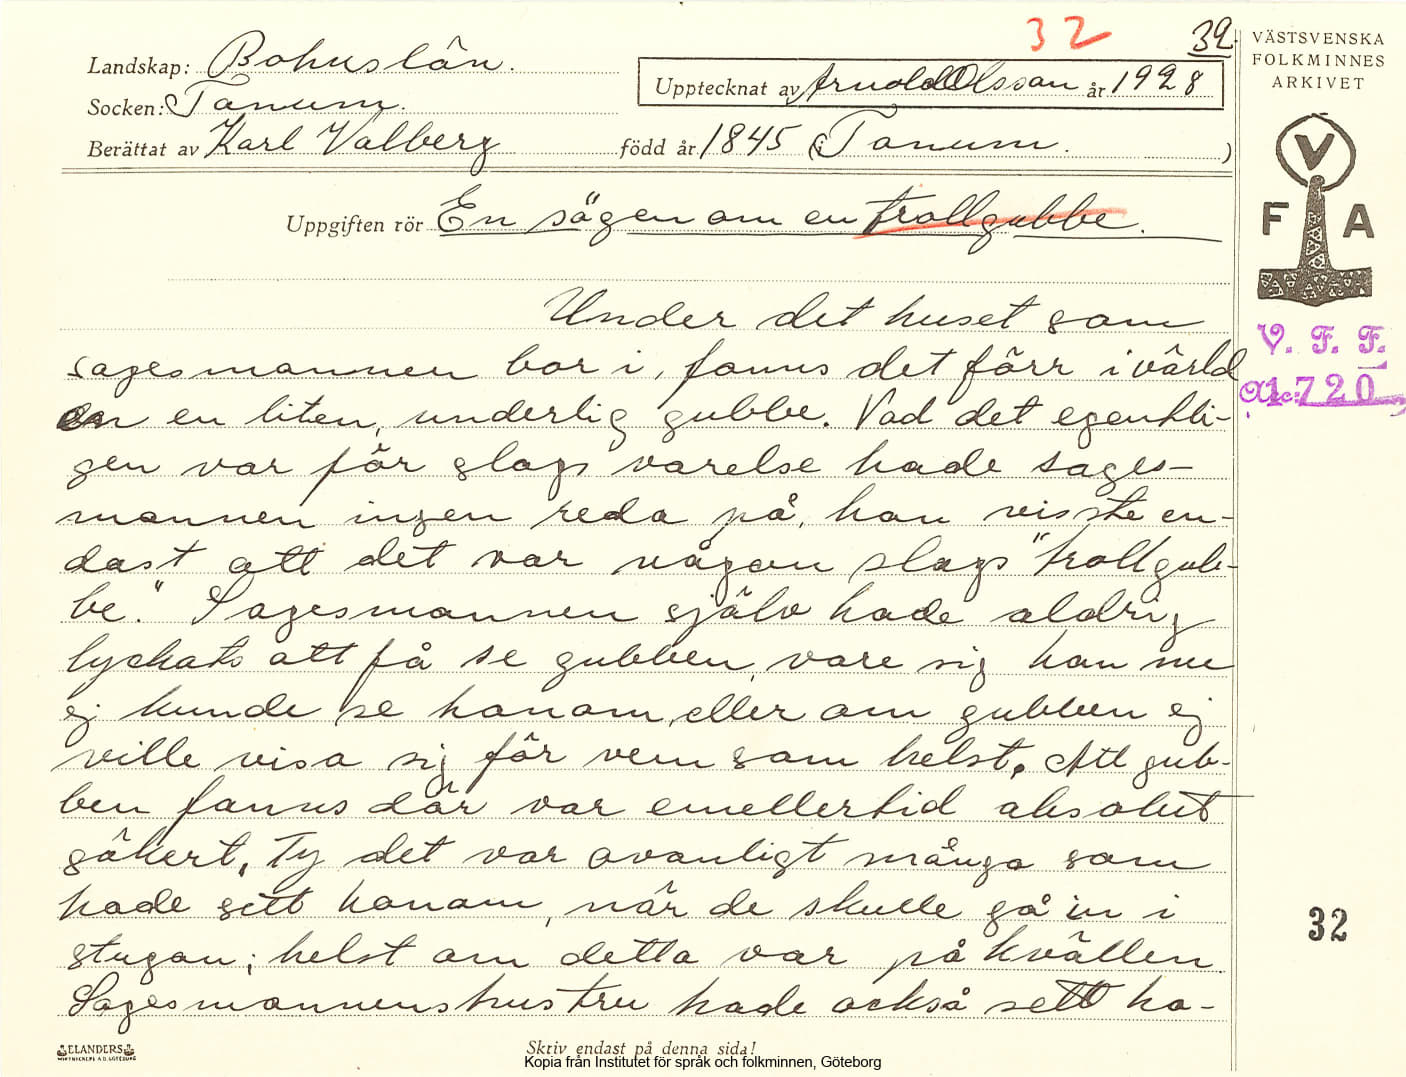 32 32.
VÄSTSVENSKA
FOLKMINNES
ARKIVET
Landskap: Bohuslän.
Upptecknat av Arnold Olsson år 1928
Socken: Tanum.
Berättat av Karl Valberg född år 1845 i Tanum. )
V
F A
Uppgiften rör En sägen om en trollgubbe.
Under det huset som
sagesmannen bor i, fanns det förr i värld
en en liten, underlig gubbe. Vad det egentli-
gen var för slags varelse hade sages-
mannen ingen reda på, han visste en-
dast att det var någon slags "trollgub-
be." Sagesmannen själv hade aldrig
lyckats att få se gubben, vare sig han nu
ej kunde se honom, eller om gubben ej
ville visa sig för vem som helst. Att gub-
ben fanns där var emellertid absolut
säkert. Ty det var ovanligt många som
hade sett honom, när de skulle gå in i
stugan; helst om detta var på kvällen.
Sagesmannens hustru hade också sett ho-
V. F. F.
Acc: 1720
32
ELANDERS
Skriv endast på denna sida!
Kopia från Institutet för språk och folkminnen, Göteborg